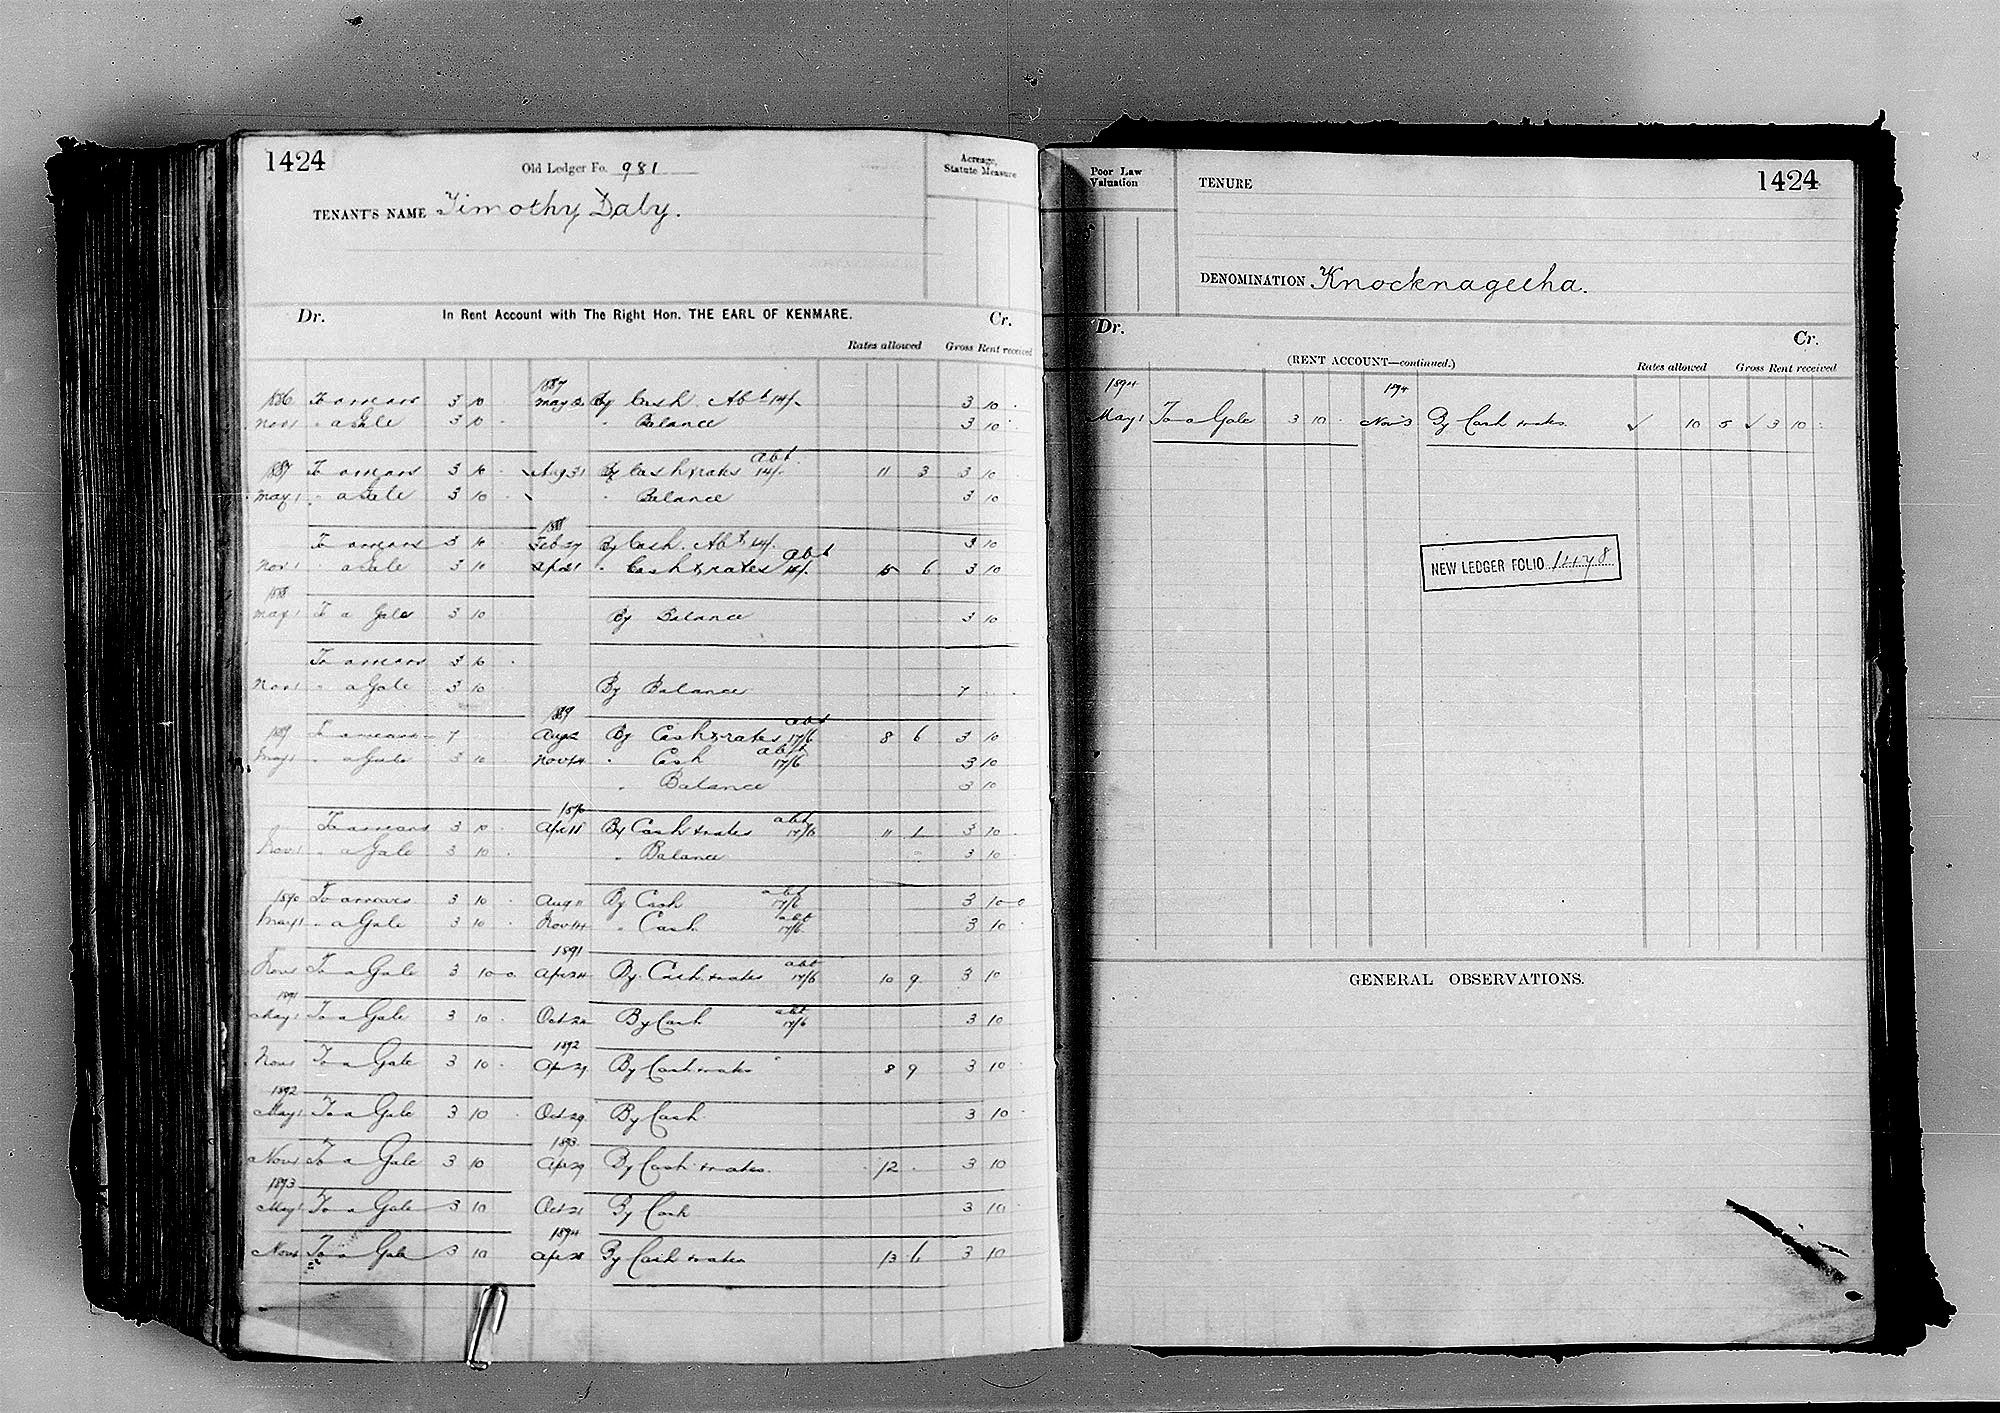 1424
Old Ledger Fo. 981
Acreage, Statute Measure
TENANT'S NAME Timothy Daly.
Dr. In Rent Account with The Right Hon. THE EARL OF KENMARE. Cr.
Rates allowed Gross Rent received
1887
1886 To arrears 3 10 May 2 By Cash Abt 14/- 3 10
Nov 1 " a Gale 3 10 " Balance 3 10
1887 To arrears 3 10 Aug 31 By Cash & rates abt 14/- 11 3 3 10
May 1 " a Gale 3 10 " Balance 3 10
1888
To arrears 3 10 Feb 27 By Cash. Abt 14/- 3 10
Nov 1 a Gale 3 10 Apl 21 " Cash & rates abt 15 6 3 10
1888
May 1 To a Gale 3 10 By Balance 3 10
To arrears 3 10
Nov 1 " a Gale 3 10 By Balance 7
1889
1889 To arrears 7 Aug 2 By Cash & rates abt 17/6 8 6 3 10
May 1 " a Gale 3 10 Nov 14 " Cash abt 17/6 3 10
" Balance 3 10
1890
To arrears 3 10 Apl 18 By Cash & rates abt 17/6 11 1 3 10
Nov 1 " a Gale 3 10 " Balance 3 10
1890 To arrears 3 10 Aug 11 By Cash abt 17/6 3 10 0
May 1 " a Gale 3 10 Nov 14 " Cash abt 17/6 3 10
1891
Nov 1 To a Gale 3 10 0 Apl 24 By Cash & rates abt 17/6 10 9 3 10
1891
May 1 To a Gale 3 10 Oct 20 By Cash abt 17/6 3 10
1892
Nov 1 To a Gale 3 10 Apl 29 By Cash & rates 8 9 3 10
1892
May 1 To a Gale 3 10 Oct 29 By Cash 3 10
1893
Nov 1 To a Gale 3 10 Apl 29 By Cash & rates 12 3 10
1893
May 1 To a Gale 3 10 Oct 21 By Cash 3 10
1894
Nov 1 To a Gale 3 10 Apl 28 By Cash & rates 13 6 3 10
Poor Law Valuation
TENURE
1424
DENOMINATION Knocknageeha.
Dr. Cr.
(RENT ACCOUNT—continued.)
Rates allowed Gross Rent received
1894 1894
May 1 To a Gale 3 10 Nov 3 By Cash & rates 10 5 3 10
NEW LEDGER FOLIO 1478
GENERAL OBSERVATIONS.